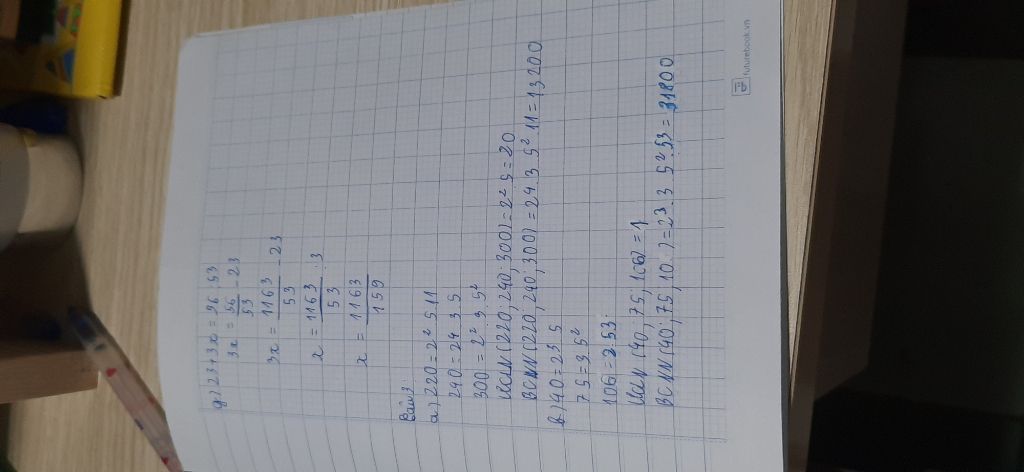 g) 23+3x = 56 : 53
3x = 56/53 - 23
3x = 1163/53 - 23
x = 1163/53 : 3
x = 1163/159
Bài 3
a) 220 = 2² 5 11
240 = 24 3 5
300 = 2² 3 5²
ƯCLN (220, 240, 300) = 2² 5 = 20
BCNN (220, 240, 300) = 24 . 3 5² 11 = 13200
b) 40 = 23 5
75 = 3 5²
106 = 2.53
ƯCLN (40, 75, 106) = 1
BCNN (40, 75, 10 ) = 23. 3 5² 53 = 31800
futurebook.vn